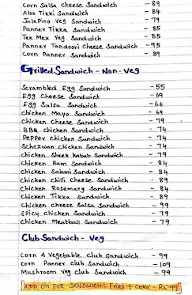 Corn Salsa Cheese Sandwich - 89
Aloo Tikki Sandwich - 84
Jalapino Veg Sandwich - 79
Panner Tikka Sandwich - 85
Tex Mex Veg Sandwich - 85
Panner Tandoori Cheese Sandwich - 95
Corn Panner Sandwich - 89
Grilled Sandwich - Non-Veg
Scrambled Egg Sandwich - 55
Egg Cheese Sandwich - 69
Egg Salsa Sandwich - 64
Chicken Mayo Sandwich - 69
Chicken Cheese Sandwich - 79
BBQ Chicken Sandwich - 74
Pepper Chicken Sandwich - 74
Schezwan Chicken Sandwich - 74
Chicken Sheek kabab Sandwich - 79
Chicken Ham Sandwich - 84
Chicken Salami Sandwich - 84
Chicken Chilli Cheese Sandwich - 89
Chicken Rosemary Sandwich - 84
Chicken Tikka Sandwich - 89
Chicken Cheese Salsa Sandwich - 99
Spicy Chicken Sandwich - 79
Chicken Meatball Sandwich - 79
Club Sandwich - Veg
Corn & Vegetable club Sandwich - 99
Corn Panner club Sandwich - 109
Mushroom Veg club Sandwich - 99
ADD ON FOR SANDWICH: Fries + Coke -